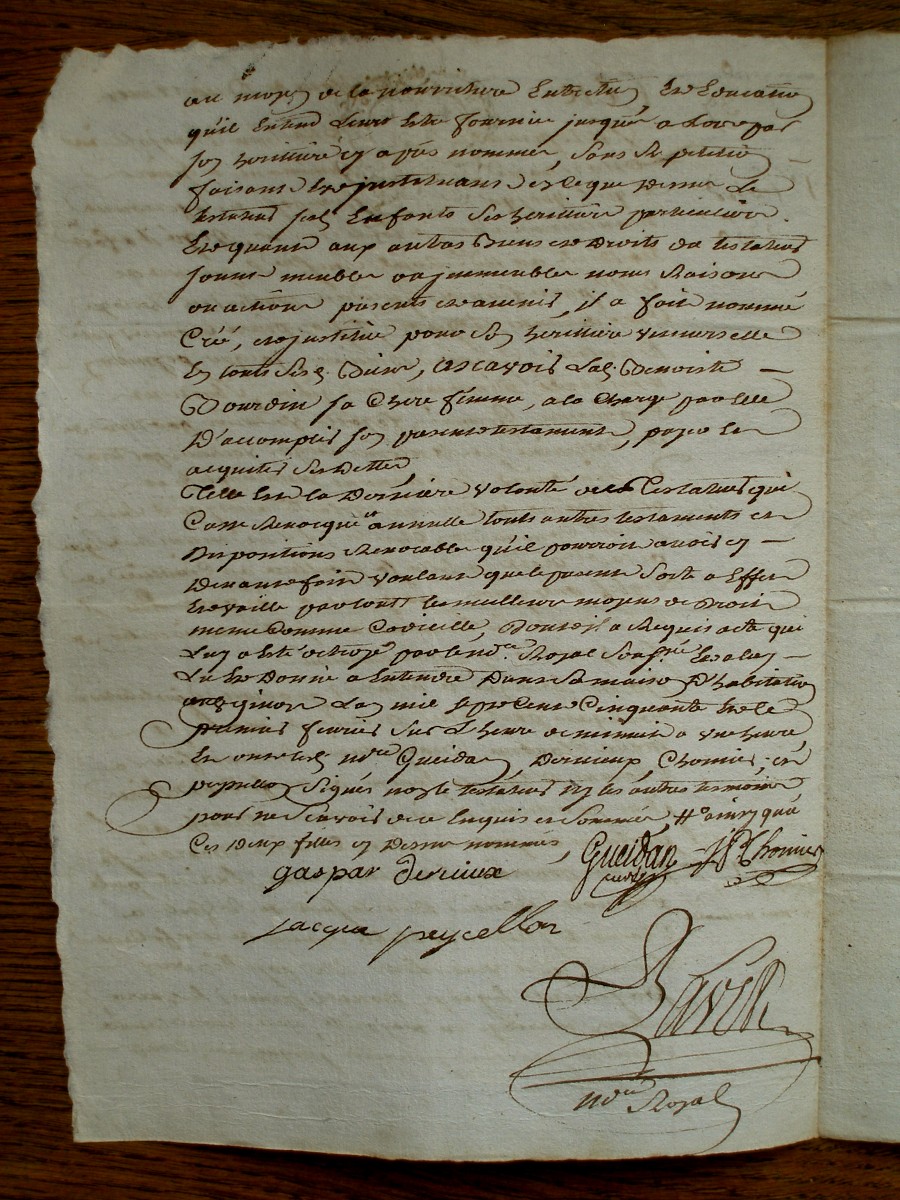 au moyen de la nourriture Entretien Et Education
qu'il Entend Leurs Estre fournie jusques a Lors par
son heritiere cy apres nommée, sans Repetition
faisant Et justituant Et ce que Dessus Le
testateur ses Enfants Ses heritiers particuliers.
Et quant aux autres Biens et Droits du testateur
soient meubles ou jmmeubles noms Raisons
ou actions presents et avenir, jl a fait nommé
Créé, et justitué pour Son heritiere universelle
En touts Ses Biens, ascavoir La Benoiste
Bourdin sa Chere femme, a la Charge par Elle
D'accomplir son present testament, payer et
acquiter Ses Dettes
Telle Est la Derniere volonté du Testateur qui
Casse Revocque et annulle touts autres testaments et
Dispositions Revocable qu'il pourroit avoir cy
Devant fait voulant que le present Sorte a Effet
Et vaille par touts les meilleurs moyens de Droit
meme Comme Codicille, Dont jl a Requis acte qui
Luy a Esté octroyé par le nore Royal Soussigné Et a luy
Lu Et Donné a Entendre Dans Sa maison D'habitation
L'an mil sept Cent Cinquante Et le
premier fevrier Sur L'heure de minuit a une heure
En presence Gueidan, Derieux, Chomier, et
peycellon Signés non le testateur ny les autres tesmoins
pour ne Scavoir de ce Enquis et Sommés, # ainsy que
Ces Deux filles cy Dessus nommés,
Gueidan Chomier
gaspar derieux
jacque peycellon
Ravier
nore Royal